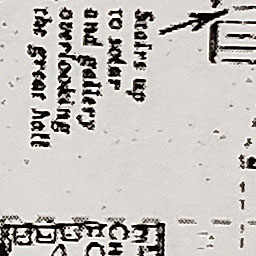 Stairs up
to solar
and gallery
overlooking
the great hall